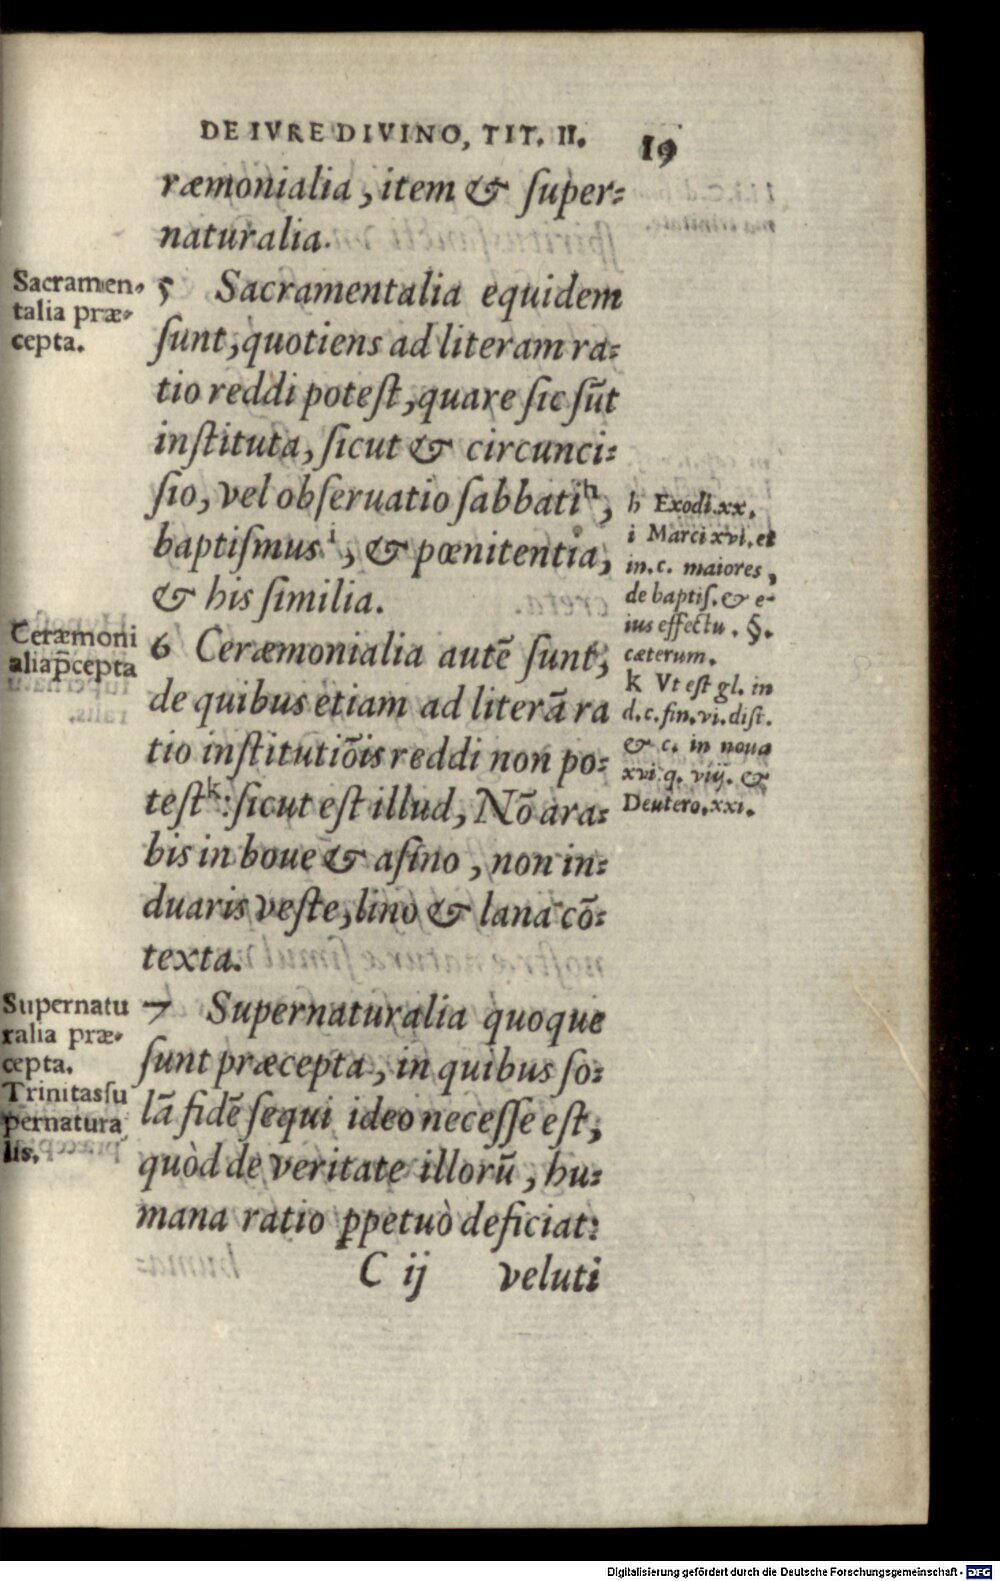 DE IVRE DIVINO, TIT. II.
19
ræmonialia, item & super-
naturalia.
Sacramen-
talia præ-
cepta.
5 Sacramentalia equidem
sunt, quotiens ad literam ra-
tio reddi potest, quare sic sūt
instituta, sicut & circunci-
sio, vel obseruatio sabbati h,
baptismus i, & pœnitentia,
& his similia.
h Exodi.xx.
i Marci xvi. et
in.c. maiores,
de baptis. & e-
ius effectu. §.
cæterum.
Ceræmoni
alia p̄cepta
6 Ceræmonialia autē sunt,
de quibus etiam ad literā ra
tio institutiōis reddi non po-
test k: sicut est illud, Nō ara-
bis in boue & asino, non in-
duaris veste, lino & lana cō-
texta.
k Vt est gl. in
d.c.fin.vi.dist.
& c. in noua
xvi q. viij. &
Deutero.xxi.
Supernatu
ralia præ-
cepta.
Trinitas su
pernatura
lis.
7 Supernaturalia quoque
sunt præcepta, in quibus so-
lā fidē sequi ideo necesse est,
quòd de veritate illorū, hu-
mana ratio ꝑpetuò deficiat:
C ij veluti
Digitalisierung gefördert durch die Deutsche Forschungsgemeinschaft - DFG